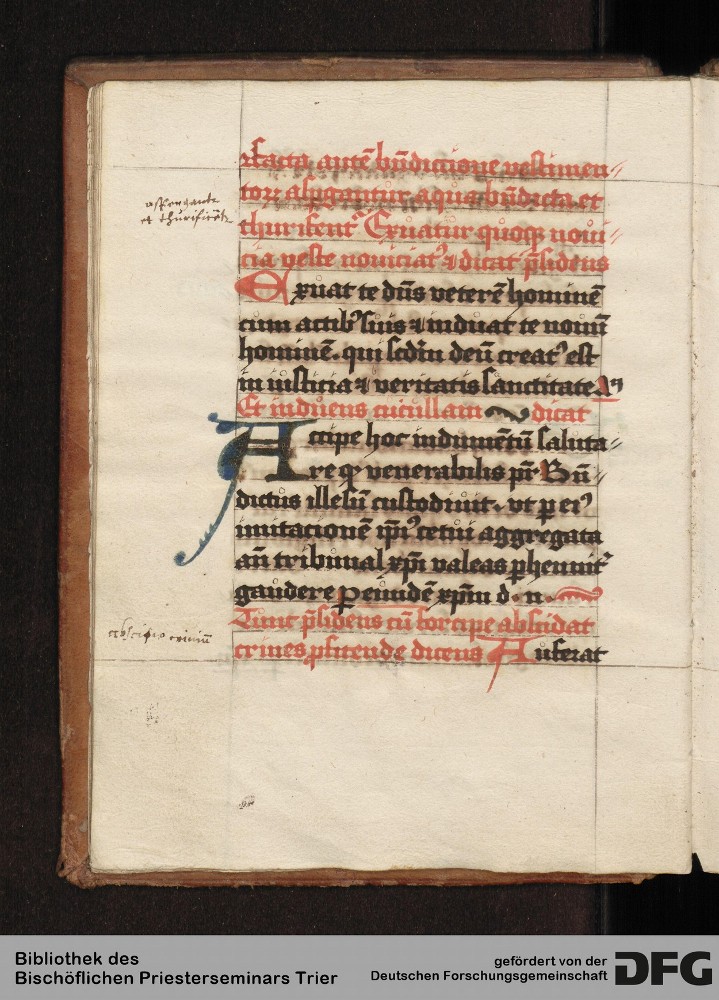 facta autē bn̄dictione vestimen⸗
torꝝ aspgantur aqua bn̄dicta et
thurificentᷣ Exuatur quoqꝫ noui⸗
cia veste nouiciatꝰ ⁊ dicat p̄sidens
aspergantᷣ
et thurificētᷣ
Exuat te dn̄s veterē hominē
cum actibꝰ suis ⁊ induat te nouū
hominē. qui scdm deū creatꝰ est
in iusticia ⁊ veritatis sanctitate
Et induens cucullam dicat
Accipe hoc indumētū saluta⸗
re qd venerabilis pr̄ Bn̄⸗
dictus illesū custodiuit. vt p eiꝰ
imitacionē ip̄iꝰ cetui aggregata
an̄ tribunal xp̄i valeas phennitᷣ
gaudere Per eundē xp̄m d. n.
Tunc p̄sidens cū forcipe abscidat
crines psitende dicens Auferat
abscisio criniū
Bibliothek des
Bischöflichen Priesterseminars Trier
gefördert von der
Deutschen Forschungsgemeinschaft
DFG